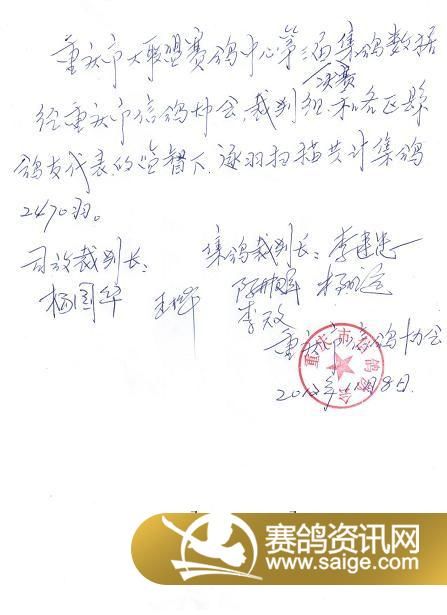 重庆市大联盟赛鸽中心第三届集鸽数据
决赛
经重庆市信鸽协会、裁判组、和各区县
鸽友代表的监督下.逐羽扫描共计集鸽
2470羽。
司放裁判长： 集鸽裁判长：李建忠
杨国华
李政
重庆市信鸽协会
8日.
赛鸽资讯网
www.saige.com